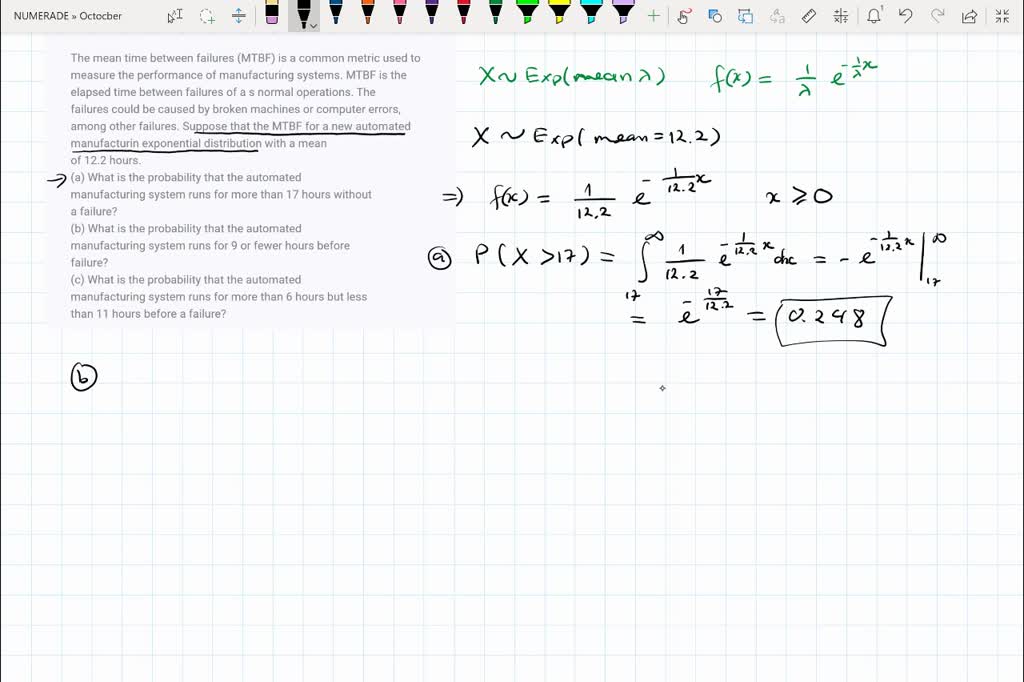 NUMERADE » Octocber
The mean time between failures (MTBF) is a common metric used to
measure the performance of manufacturing systems. MTBF is the
elapsed time between failures of a s normal operations. The
failures could be caused by broken machines or computer errors,
among other failures. Suppose that the MTBF for a new automated
manufacturin exponential distribution with a mean
of 12.2 hours.
(a) What is the probability that the automated
manufacturing system runs for more than 17 hours without
a failure?
(b) What is the probability that the automated
manufacturing system runs for 9 or fewer hours before
failure?
(c) What is the probability that the automated
manufacturing system runs for more than 6 hours but less
than 11 hours before a failure?
X ~ Exp(mean λ) f(x) = 1/λ e^{-1/λ x}
X ~ Exp(mean = 12.2)
⇒ f(x) = 1/12.2 e^{-1/12.2 x} x ≥ 0
ⓐ P(X > 17) = ∫_{17}^{∞} 1/12.2 e^{-1/12.2 x} dx = - e^{-1/12.2 x} |_{17}^{∞}
= e^{-17/12.2} = 0.248
ⓑ